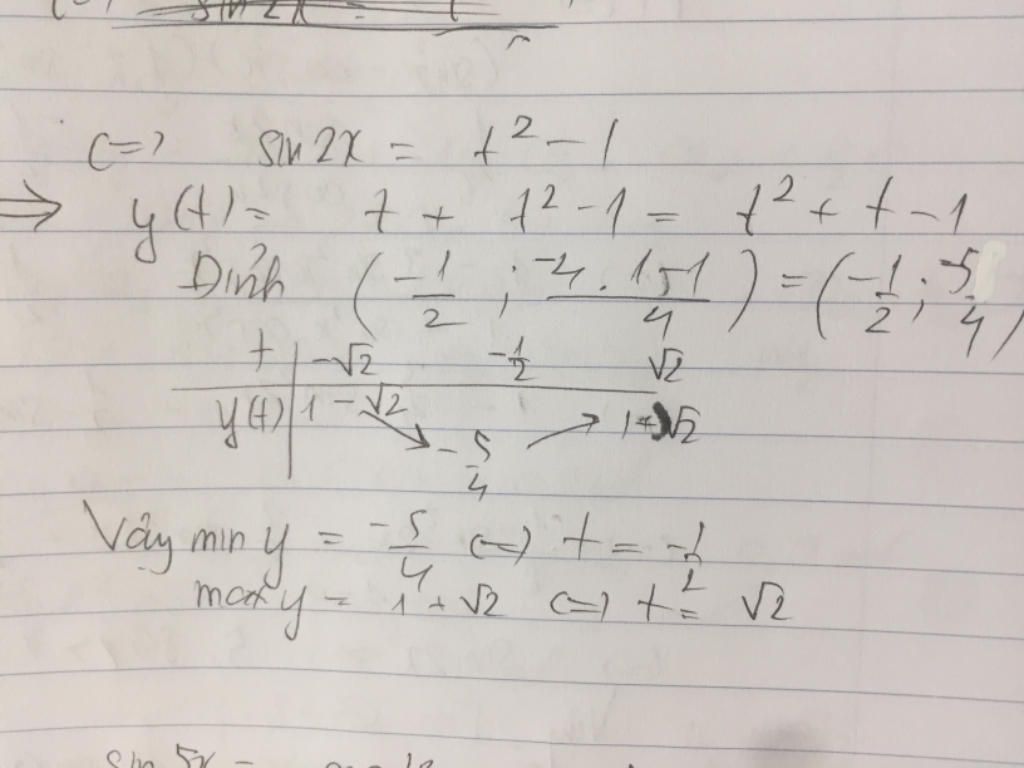 sin 2x =
<=> sin 2x = t² - 1
=> y(t) = t + t² - 1 = t² + t - 1
Đỉnh (-1/2 ; -4.1.-1/4) = (-1/2 ; -5/4)
t | -√2 -1/2 √2
y(t) | 1 - √2 -5/4 1 + √2
Vậy min y = -5/4 <=> t = -1/2
max y = 1 + √2 <=> t = √2
sin 5x =